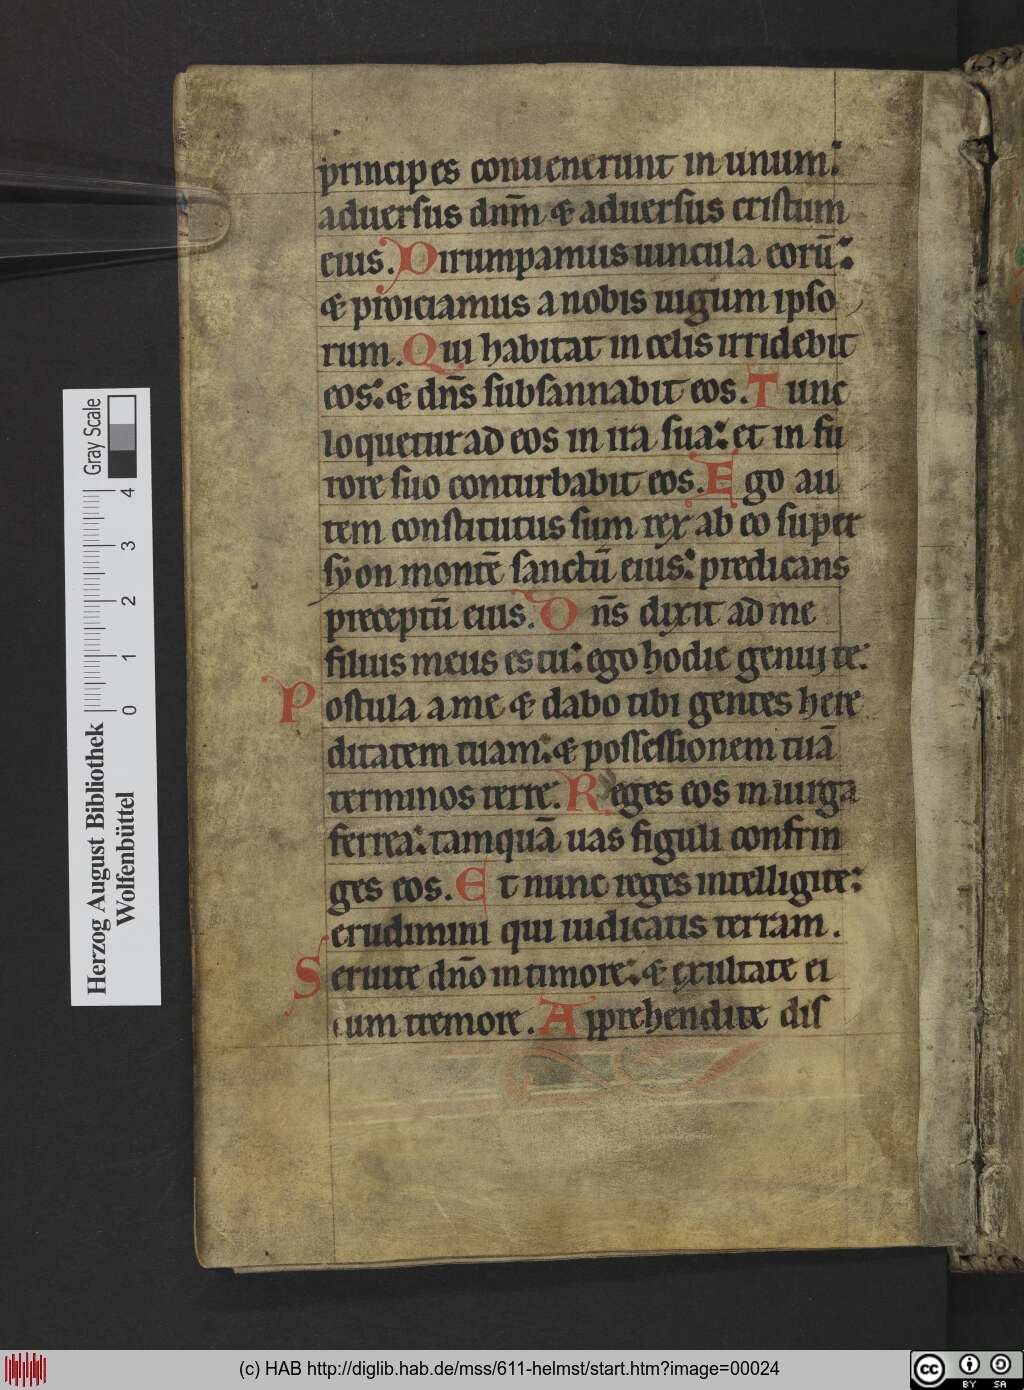 principes conuenerunt in unum:
aduersus dnm̄ & aduersus cristum
eius. Dirumpamus uincula eorū:
& proiciamus a nobis iugum ipso
rum. Qui habitat in celis irridebit
eos: & dn̄s subsannabit eos. Tunc
loquetur ad eos in ira sua: et in fu
rore suo conturbabit eos. Ego au
tem constitutus sum rex ab eo super
syon montē sanctū eius: predicans
preceptū eius. Dn̄s dixit ad me
filius meus es tu: ego hodie genui te:
Postula a me & dabo tibi gentes here
ditatem tuam: & possessionem tuā
terminos terre: Reges eos in uirga
ferrea: tamquā uas figuli confrin
ges eos. Et nunc reges intelligite:
erudimini qui iudicatis terram.
Seruite dn̄o in timore: & exultate ei
cum tremore. Apprehendite dis
Herzog August Bibliothek
Wolfenbüttel
Gray Scale
0 1 2 3 4
(c) HAB http://diglib.hab.de/mss/611-helmst/start.htm?image=00024
cc BY SA